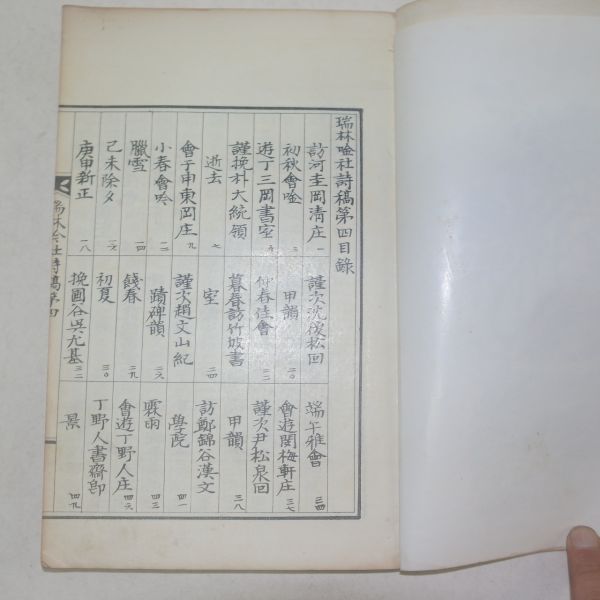 瑞林唫社詩稿第四目錄
訪河圭岡淸庄 一
初秋會唫 三
遊丁三岡書室 五
謹挽朴大統領
逝去 七
會于申東岡庄 九
小春會吟 一二
臘雪 一四
己未除夕 一六
庚申新正 一八
謹次沈復松回
甲韻 二〇
仲春佳會 二二
暮春訪竹坡書
室 二四
謹次趙文山紀
蹟碑韻 二六
餞春 二九
初夏 三〇
挽圃谷吳尤甚 三二
端午雅會 三四
會遊閔梅軒庄 三七
謹次尹松泉回
甲韻 三八
訪鄭錦谷漢文
學院 四一
霖雨 四三
會遊丁野人庄 四六
丁野人書齋即
景 四九
瑞林吟社詩稿第四